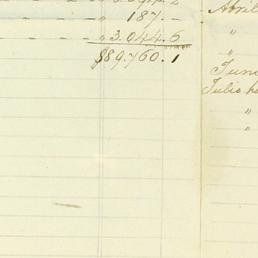 " 187. -
" 3.044.6
$89.760.1
Abril
"
"
Juni
Julio
"
"